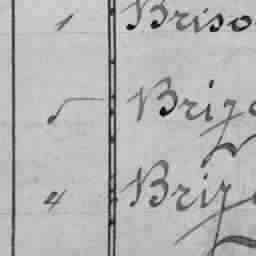 1 Briso
5 Brizo
4 Briz